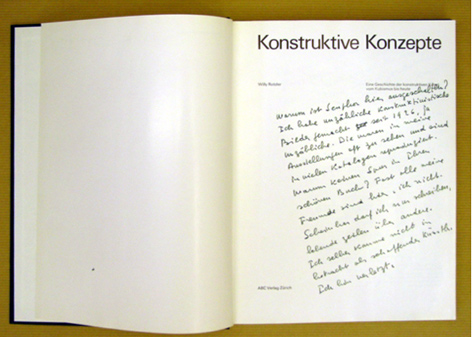 Konstruktive Konzepte
Willy Rotzler
Eine Geschichte der konstruktiven Kunst
vom Kubismus bis heute
Warum ist Seuphor hier ausgeschaltet?
Ich habe unzählige Konstruktivistische
Bilder gemacht seit 1926, ja
unzählige. Die waren in meine
Ausstellungen oft zu sehen und sind
in vielen Katalogen reproduziert.
Warum keinen Spur in Ihren
schönen Buch? Fast alle meine
Freunde sind hier, ich nicht.
Scheinbar darf ich nur schreiben,
über andere.
Ich selber komme nicht in
betracht als schaffender Künstler.
Ich bin verletzt.
ABC Verlag Zürich